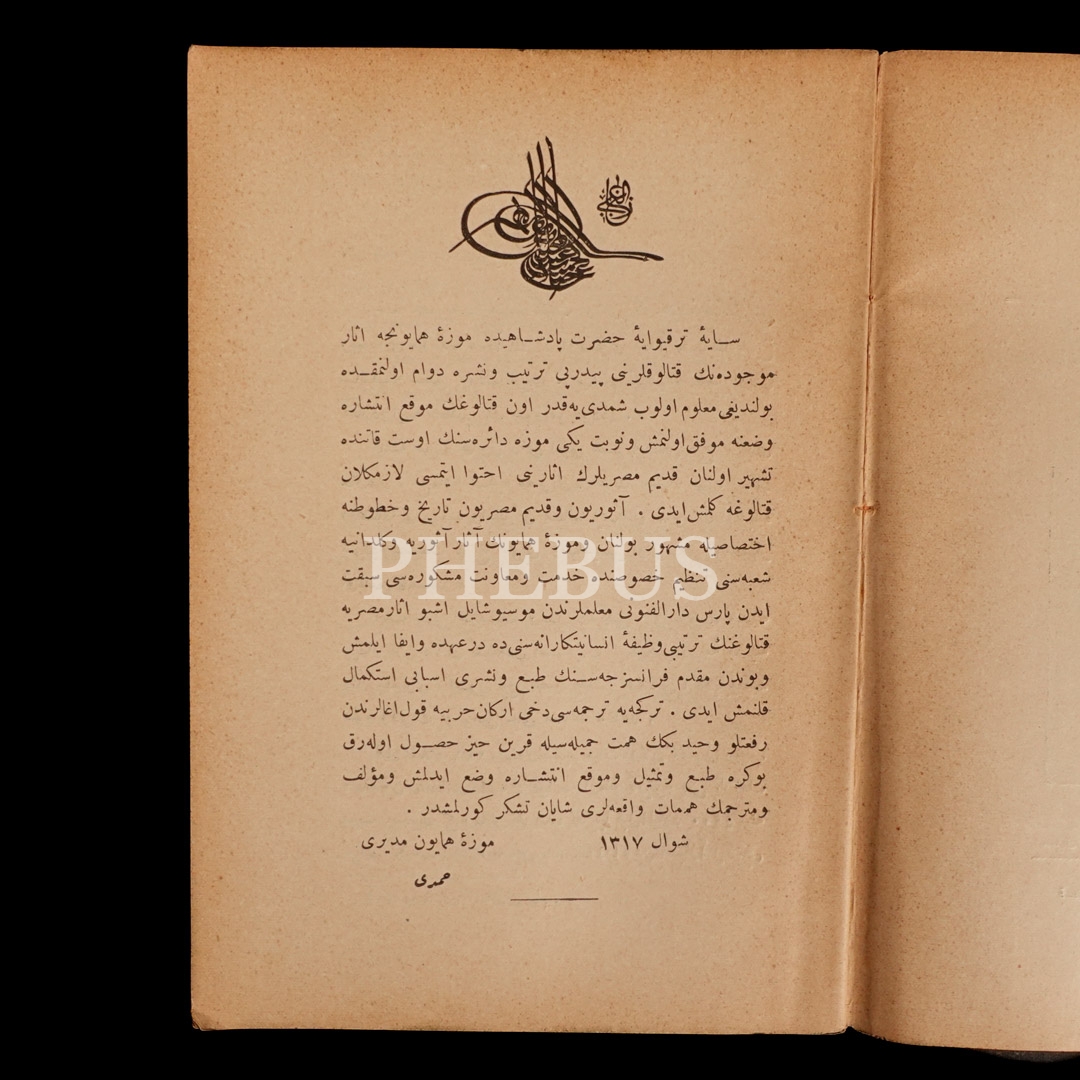 الغازی
سایۀ ترقیوایۀ حضرت پادشاهیده موزۀ همایونجه اثار
موجوده‌نك قتالوقلرینی پیدرپی ترتیب ونشره دوام اولنمقده
بولندیغی معلوم اولوب شمدی‌یه‌قدر اون قتالوغك موقع انتشاره
وضعنه موفق اولنمش ونوبت یکی موزه دائره‌سنك اوست قاتنده
تشهیر اولنان قدیم مصریلرك اثارینی احتوا ایتمسی لازمکلان
قتالوغه کلمش ایدی . آثوریون وقدیم مصریون تاریخ وخطوطنه
اختصاصیله مشهور بولنان وموزۀ همایونك آثار آثوریه وکلدانیه
شعبه‌سنی تنظیم خصوصنده خدمت ومعاونت مشکوره‌سی سبقت
ایدن پارس دارالفنونی معلملرندن موسیو شایل اشبو اثار مصریه
قتالوغنك ترتیبی وظیفۀ انسانیتکارانه‌سنی‌ده درعهده وایفا ایلمش
وبوندن مقدم فرانسزجه‌سنك طبع ونشری اسبابی استکمال
قلنمش ایدی . ترکجه‌یه ترجمه‌سی دخی ارکان حربیه قول اغالرندن
رفعتلو وحید بکك همت جمیله‌سیله قرین حیز حصول اوله‌رق
بوکره طبع وتمثیل وموقع انتشاره وضع ایدلمش ومؤلف
ومترجمك هممات واقعه‌لری شایان تشکر کورلمشدر .
شوال ۱۳۱۷ موزۀ همایون مدیری
حمدی
PHEBUS